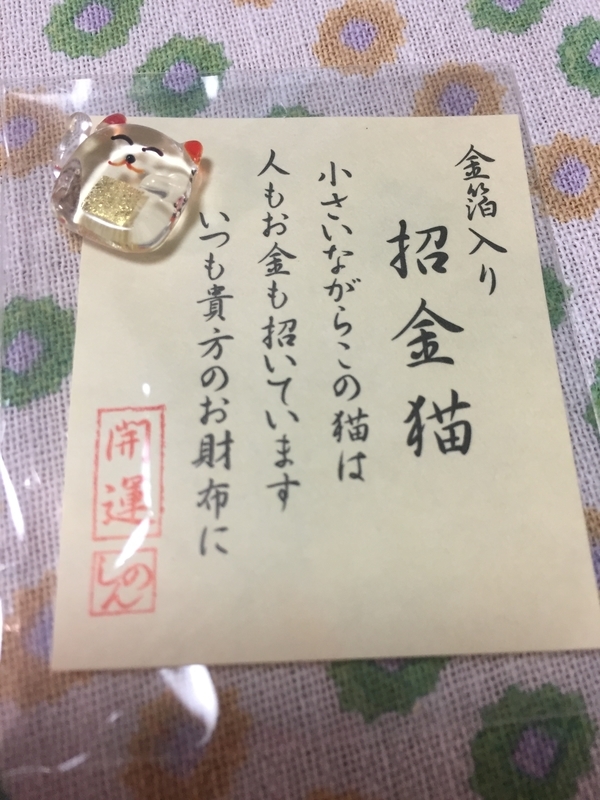 金箔入り
招金猫
小さいながらこの猫は
人もお金も招いています
いつも貴方のお財布に
開運
のしん